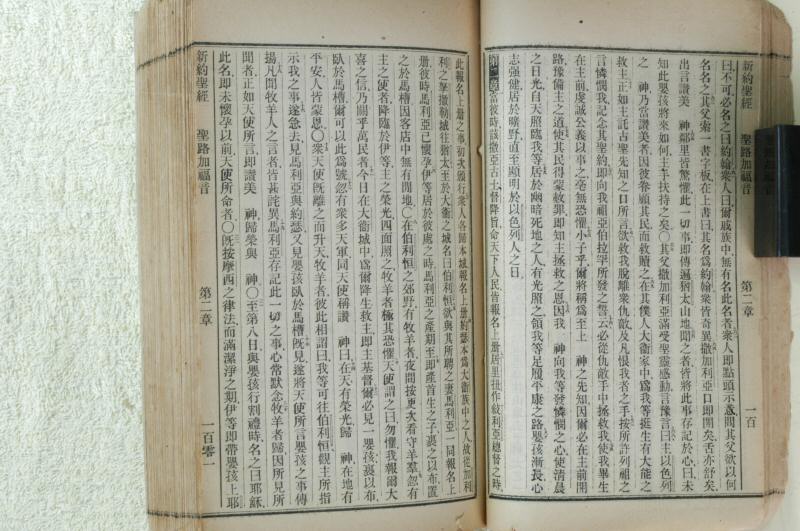 新約聖經 聖路加福音 第二章 一百
曰不可必名之曰約翰衆人曰爾戚族中無有名此名者衆人即點頭示意問其父欲以何
名名之其父索一書字板在上書曰其名爲約翰衆皆奇異撒加利亞口即開矣舌亦舒矣
出言讚美 神鄰里皆驚懼此一切事即傳遍猶太山地聞之者皆將此事存記於心曰未
知此嬰孩將來如何主手扶持之矣〇其父撒加利亞滿受聖靈感動言豫言曰主以色列
之 神乃當讚美者因彼眷顧其民而救贖之在其僕人大衛家中爲我等挺生有大能之
救主正如主託古聖先知之口所言欲救我脫離衆仇敵及凡恨我者之手按所許列祖之
言憐憫我記念其聖約即向我祖亞伯拉罕所發之誓云必從仇敵手中拯救我使我畢生
在主前虔誠公義以事之毫無恐懼小子乎爾將稱爲至上 神之先知因爾必在主前開
路豫備主之道使其民得蒙赦罪即知主拯救之恩因我 神向我等發憐憫之心使清晨
之日光自天照臨我等居於幽暗死地之人有光照之領我等足履平康之路嬰孩漸長心
志强健居於曠野直至顯明於以色列人之日
第二章 當彼時該撒亞古士督降旨命天下人民皆報名上册居里扯作敍利亞總督之時
此報名上册之事初次頒行衆人各歸本城報名上册約瑟本爲大衛族中之人故從加利
利之拏撒勒城往猶太至於大衛之城名曰伯利恒欲與其所聘之妻馬利亞一同報名上
册彼時馬利亞已懷孕伊等居於彼處之時馬利亞之產期至即產首生之子裹之以布置
之於馬槽因客店中無有閒地〇在伯利恒之郊野有牧羊者夜間按更次看守羊羣忽有
主之使者降臨於伊等主之榮光四面照之牧羊者極其恐懼天使謂之曰勿懼我報爾大
喜之信乃關乎萬民者今日在大衛城中爲爾降生救主即主基督爾必見一嬰孩裹以布
臥於馬槽爾可以此爲號忽有衆多天軍同天使稱讚 神曰在天有榮光歸 神在地有
平安人皆蒙恩〇衆天使既離之而升天牧羊者彼此相謂曰我等可往伯利恒觀主所指
示我之事遂急去見馬利亞與約瑟又見嬰孩臥於馬槽既見遂將天使所言嬰孩之事傳
揚凡聞牧羊人之言者皆甚詫異馬利亞存記此一切之事心常默念牧羊者歸因所見所
聞者正如天使所言即讚美 神歸榮與 神〇至第八日與嬰孩行割禮時名之曰耶穌
此名即未懷孕以前天使所命者〇既按摩西之律法而滿潔淨之期伊等即帶嬰孩上耶
新約聖經 聖路加福音 第二章 一百零一